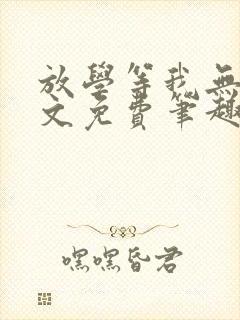 放學等我無
文免費筆趣
嘿嘿昏君